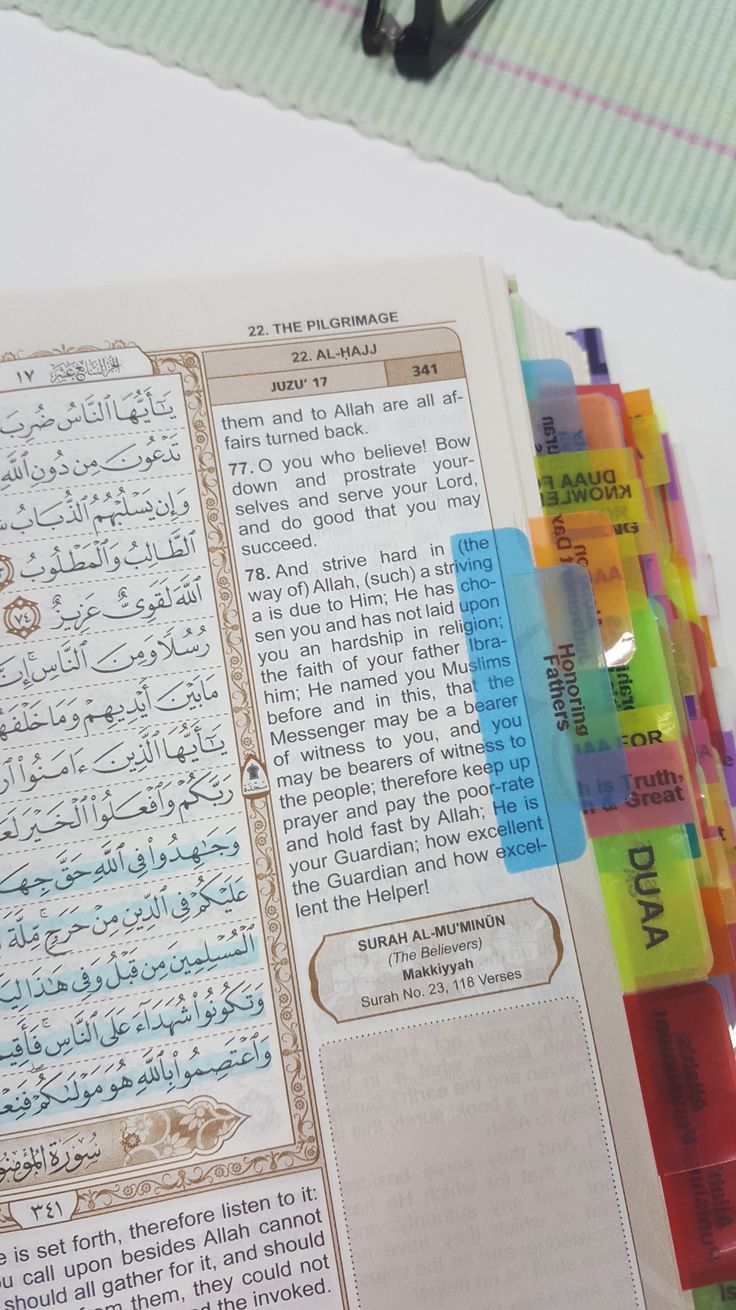 22. THE PILGRIMAGE
22. AL-ḤAJJ
JUZU' 17
341
them and to Allah are all af-
fairs turned back.
77. O you who believe! Bow
down and prostrate your-
selves and serve your Lord,
and do good that you may
succeed.
78. And strive hard in (the
way of) Allah, (such) a striving
a is due to Him; He has cho-
sen you and has not laid upon
you an hardship in religion;
the faith of your father Ibra-
him; He named you Muslims
before and in this, that the
Messenger may be a bearer
of witness to you, and you
may be bearers of witness to
the people; therefore keep up
prayer and pay the poor-rate
and hold fast by Allah; He is
your Guardian; how excellent
the Guardian and how excel-
lent the Helper!
SURAH AL-MU'MINŪN
(The Believers)
Makkiyyah
Surah No. 23, 118 Verses
١٧
الجزء السابع عشر
يَـٰٓأَيُّهَا ٱلنَّاسُ ضُرِبَ
تَدْعُونَ مِن دُونِ ٱللَّهِ
وَإِن يَسْلُبْهُمُ ٱلذُّبَابُ
ٱلطَّالِبُ وَٱلْمَطْلُوبُ
ٱللَّهَ لَقَوِىٌّ عَزِيزٌ ٧٤
رُسُلًا وَمِنَ ٱلنَّاسِ إِنَّ
مَا بَيْنَ أَيْدِيهِمْ وَمَا خَلْفَهُمْ
يَـٰٓأَيُّهَا ٱلَّذِينَ ءَامَنُوا۟
رَبَّكُمْ وَٱفْعَلُوا۟ ٱلْخَيْرَ
وَجَـٰهِدُوا۟ فِى ٱللَّهِ حَقَّ
عَلَيْكُمْ فِى ٱلدِّينِ مِنْ حَرَجٍ مِّلَّةَ
ٱلْمُسْلِمِينَ مِن قَبْلُ وَفِى هَـٰذَا
وَتَكُونُوا۟ شُهَدَآءَ عَلَى ٱلنَّاسِ
وَٱعْتَصِمُوا۟ بِٱللَّهِ هُوَ مَوْلَىٰكُمْ
سجدة
سُورَةُ
٣٤١
is set forth, therefore listen to it:
call upon besides Allah cannot
should all gather for it, and should
them, they could not
the invoked.
DUAA
KNOWLE
Honoring
Fathers
FOR
is Truth,
Great
DUAA
Allah's